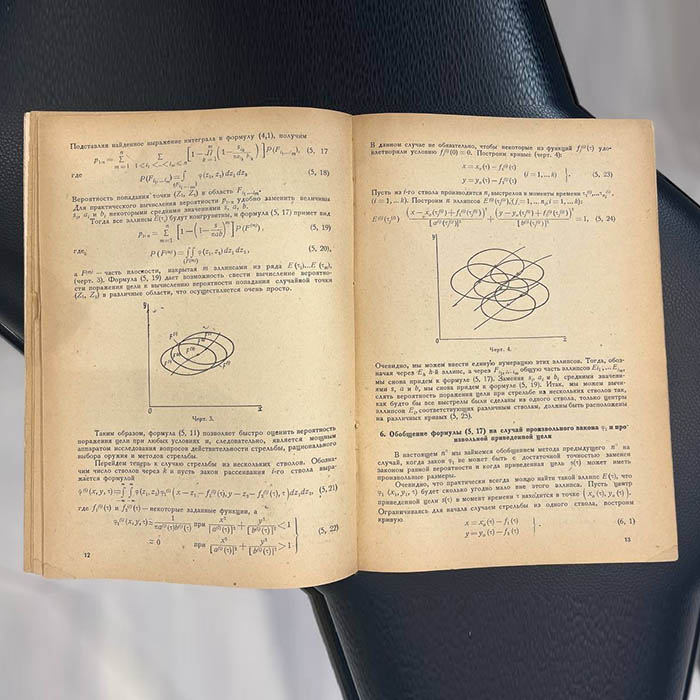 Подставляя найденное выражение интеграла в формулу (4,1), получим
(5, 17
где
(5, 18)
Вероятность попадания точки (Z₁, Z₂) в область
Для практического вычисления вероятности P₁₋ₙ удобно заменить величины
sᵢ, aᵢ и bᵢ некоторыми средними значениями s, a, b.
Тогда все эллипсы E(τᵢ) будут конгруэнтны, и формула (5, 17) примет вид
(5, 19)
где
(5, 20),
а F⁽ᵐ⁾ — часть плоскости, накрытая m эллипсами из ряда E (τ₁)...E (τₙ),
(черт. 3). Формула (5, 19) дает возможность свести вычисление вероятно-
сти поражения цели к вычислению вероятности попадания случайной точки
(Z₁, Z₂) в различные области, что осуществляется очень просто.
Черт. 3.
Таким образом, формула (5, 11) позволяет быстро оценить вероятность
поражения цели при любых условиях и, следовательно, является мощным
аппаратом исследования вопросов действительности стрельбы, рационального
выбора оружия и методов стрельбы.
Перейдем теперь к случаю стрельбы из нескольких стволов. Обозна-
чим число стволов через k и пусть закон рассеивания i-го ствола выра-
жается формулой
(5, 21)
где f₁⁽ⁱ⁾(τ) и f₂⁽ⁱ⁾(τ) — некоторые заданные функции, а
при
(5, 22)
≈ 0 при
12
В данном случае не обязательно, чтобы некоторые из функций fⱼ⁽ⁱ⁾(τ) удо-
влетворяли условию fⱼ⁽ⁱ⁾(0) = 0. Построим кривые (черт. 4):
x = xᵤ(τ) — f₁⁽ⁱ⁾(τ)
y = yᵤ(τ) — f₂⁽ⁱ⁾(τ)
(i = 1,... k) . (5, 23)
Пусть из i-го ствола производится nᵢ выстрелов в моменты времени
(i = 1,... k). Построим n эллипсов
= 1, (5, 24)
Черт. 4.
Очевидно, мы можем ввести единую нумерацию этих эллипсов. Тогда, обоз-
начая через Eₖ k-й эллипс, а через общую часть эллипсов
мы снова придем к формуле (5, 17). Заменяя sᵢ, aᵢ и bᵢ средними значени-
ями s, a и b, мы снова придем к формуле (5, 19). Итак, мы можем вычи-
слять вероятность поражения цели при стрельбе из нескольких стволов так,
как будто бы все выстрелы были сделаны из одного ствола, только центры
эллипсов соответствующих различным стволам, должны быть расположены
на различных кривых (5, 23).
6. Обобщение формулы (5, 17) на случай произвольного закона φ₁ и про-
извольной приведенной цели
В настоящем n° мы займемся обобщением метода предыдущего n° на
случай, когда закон φ₁ не может быть с достаточной точностью заменен
законом равной вероятности и когда приведенная цель s(τ) может иметь
произвольные размеры.
Очевидно, что практически всегда можно найти такой эллипс E(τ), что
φ₁ (x₁, y₁, τ) будет сколько угодно мало вне этого эллипса. Пусть центр
приведенной цели s(τ) в момент времени τ находится в точке (xᵤ(τ), yᵤ(τ)).
Ограничиваясь для начала случаем стрельбы из одного ствола, построим
кривую
x = xᵤ(τ) — f₁(τ)
y = yᵤ(τ) — f₂(τ)
(6, 1)
13